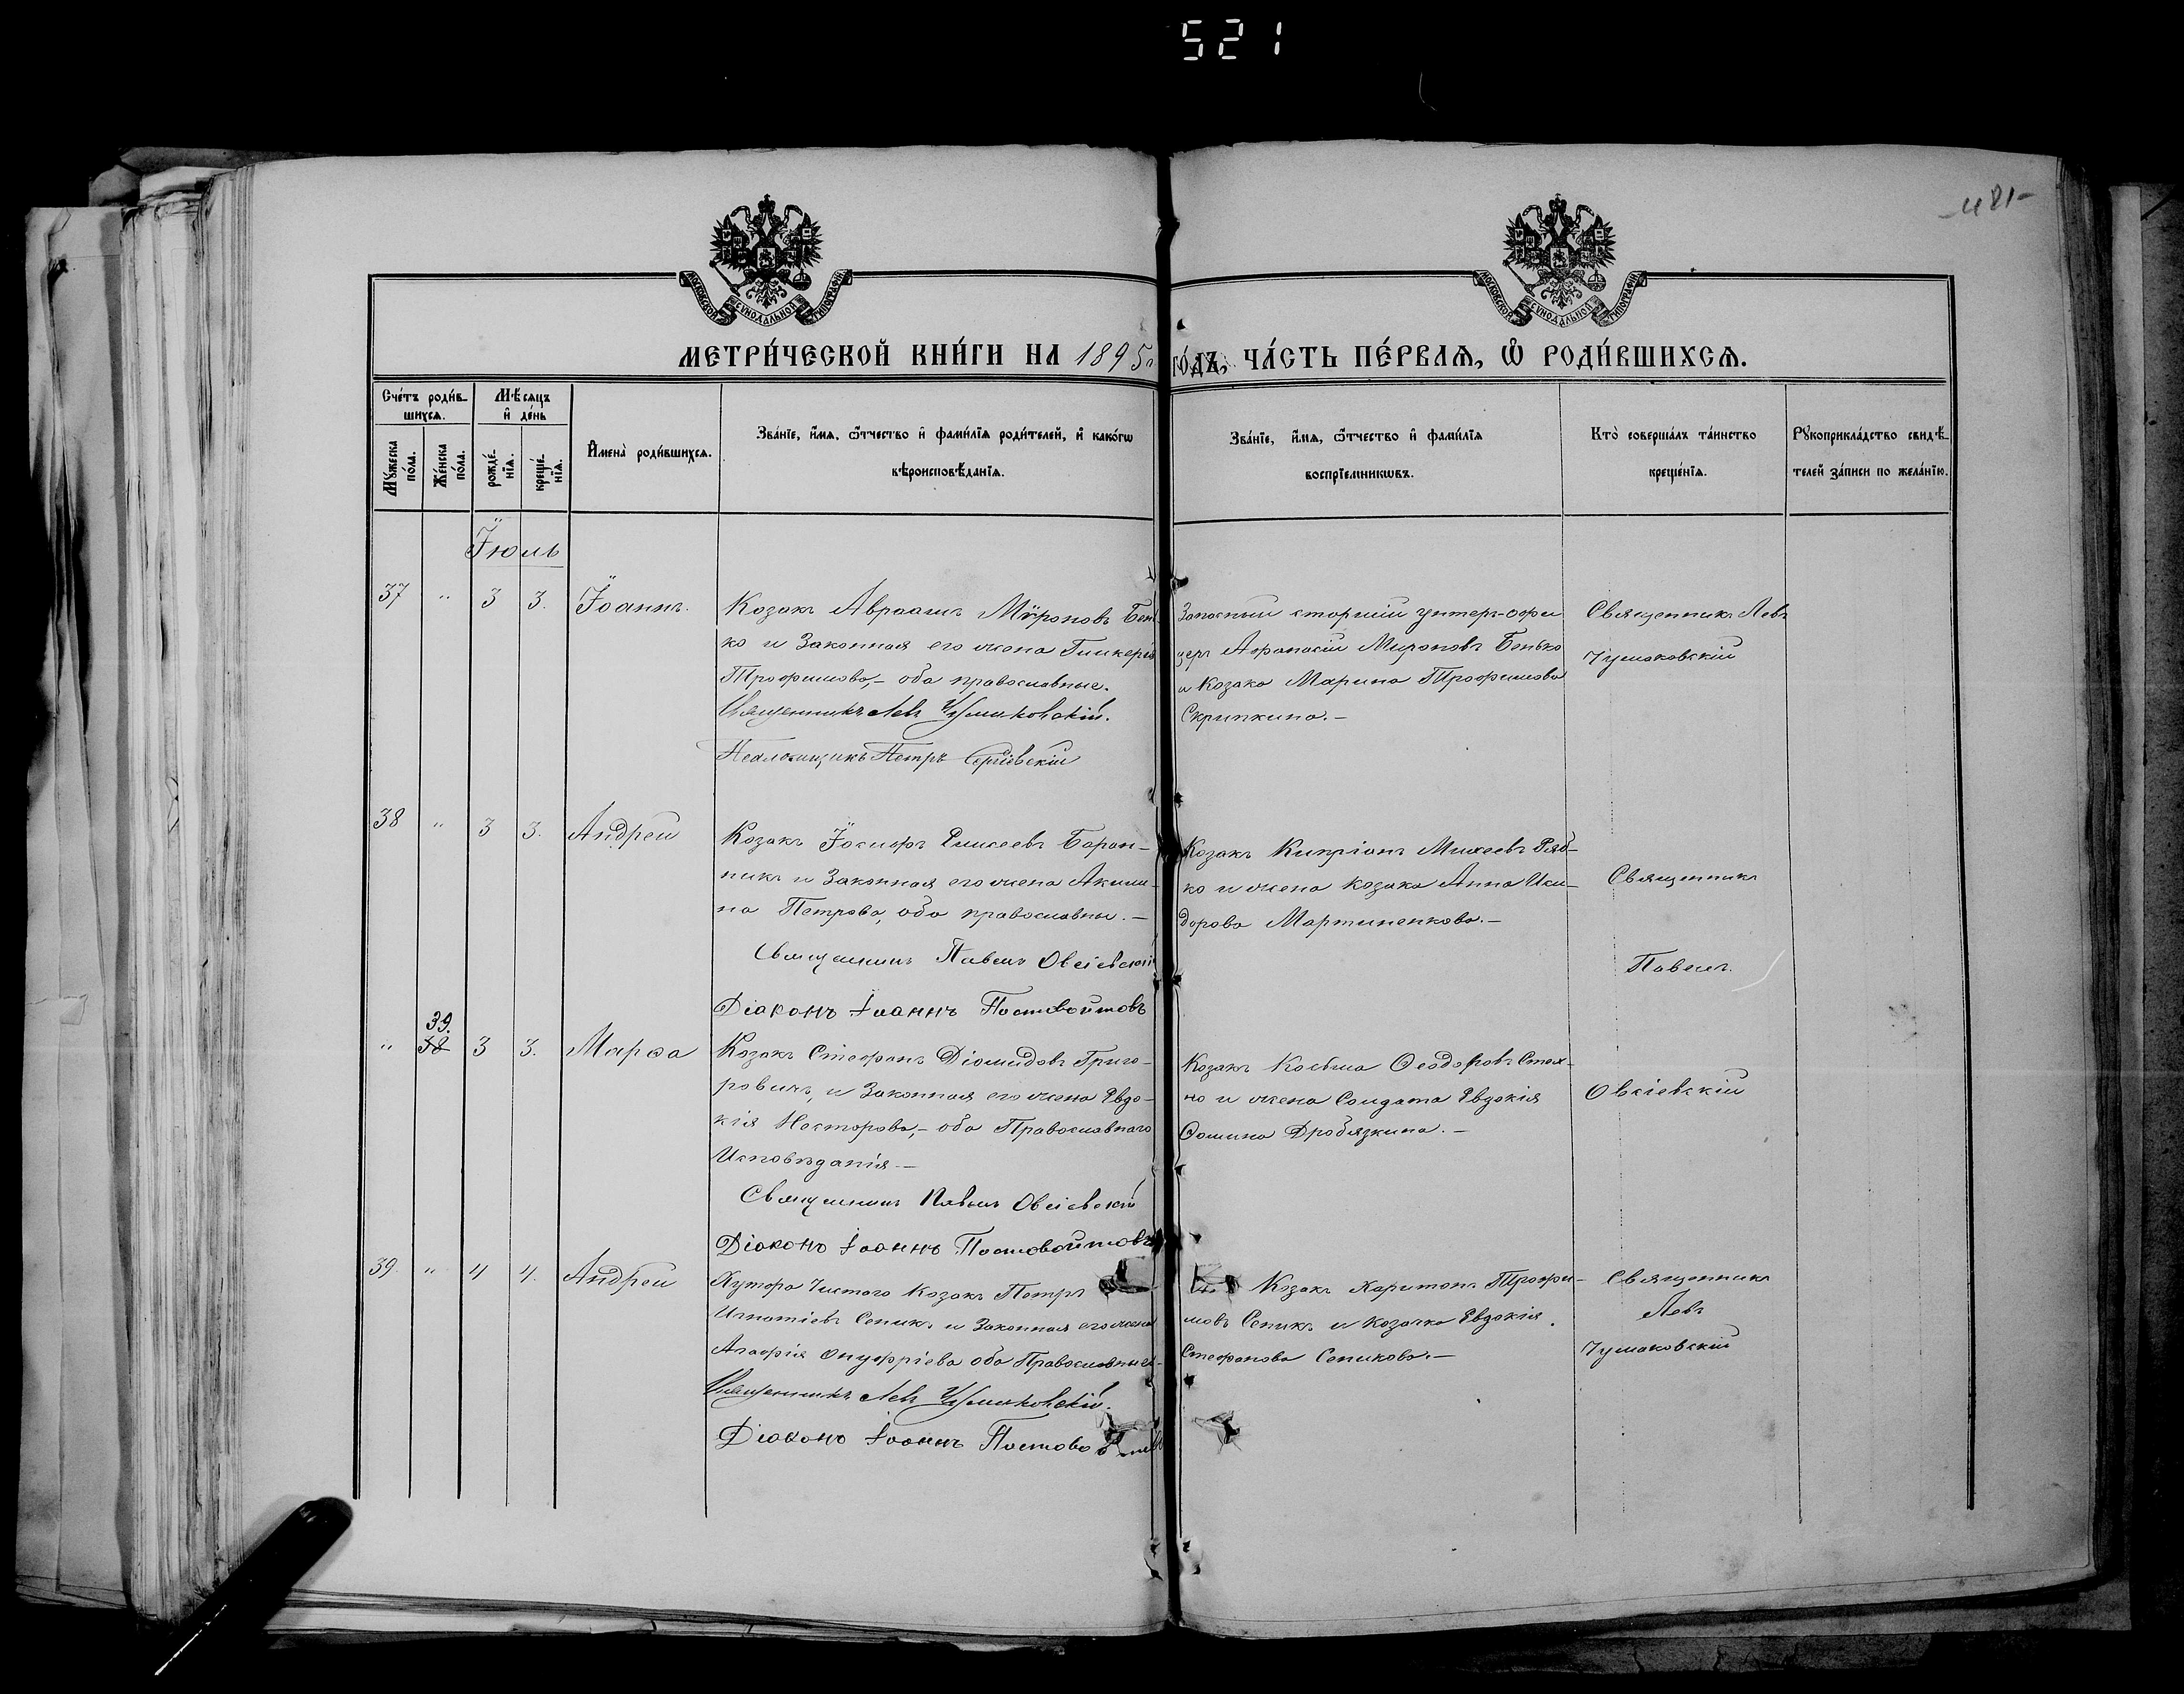 521
-481-
МОСКОВСКОЙ СУНОДАЛЬНОЙ ТИПОГРАФІИ
МОСКОВСКОЙ СУНОДАЛЬНОЙ ТИПОГРАФІИ
МЕТРИ́ЧЕСКОЙ КНИ́ГИ НА 1895 ГО́ДЪ, ЧА́СТЬ ПЕ́РВАѦ, Ѡ҆ РОДИ́ВШИХСѦ.
Сче́тъ роди́в-
шихсѧ.
Мꙋ́жеска по́ла.
Же́нска по́ла.
Мѣ́сѧцъ
и҆ де́нь
рожде́-
нїѧ.
креще́-
нїѧ.
И҆мена̀ роди́вшихсѧ.
Зва́нїе, и҆́мѧ, ѻ҆́тчество и҆ фами́лїѧ роди́телей, и҆ како́гѡ
вѣроисповѣ́данїѧ.
Зва́нїе, и҆́мѧ, ѻ҆́тчество и҆ фами́лїѧ
воспрїе́мникѡвъ.
Кто̀ соверша́лъ та́инство
креще́нїѧ.
Рꙋкоприкла́дство свидѣ́-
телей за́писи по жела́нїю.
Іюль
37 " 3 3. Іоаннъ.
Козакъ Авраамъ Мѵроновъ Бен
ко и Законная его жена Гликерія
Трофимова,- оба православные.
Священникъ Левъ Чумаковскій.
Псаломщикъ Петръ Сергіевскій
Запасный старшій унтеръ-офи
церъ Афанасій Мироновъ Бенько
и Козака Марина Трофимова
Скрипкина.-
Священникъ Левъ
Чумаковскій
38 " 3 3. Андрей
Козакъ Іосифъ Елисеевъ Баран-
никъ и Законная его жена Акили-
на Петрова, оба православны.-
Священникъ Павелъ Овсіевскій
Діаконъ Іоаннъ Постовойтовъ
Козакъ Кипріанъ Михеевъ Ряб-
ко и жена козака Анна Иси-
дорова Мартиненкова.-
Священникъ
Павелъ.
39.
" 38 3 3. Марѳа
Козакъ Стефанъ Діомидовъ Григо-
ровичъ, и Законная его жена Евдо-
кія Несторова,- оба Православнаго
Исповѣданія.-
Священникъ Павелъ Овсіевскій
Діаконъ Іоаннъ Постовойтовъ
Козакъ Косьма Ѳеодоровъ Стах-
но и жена Солдата Евдокія
Ѳомина Дробязкина.-
Овсіевскій
39. " 4 4. Андрей
Хутора Чистого Козакъ Петръ
Игнатіевъ Сепикъ. и Законная его жена
Агафія Онуфріева оба Православные.-
Священникъ Левъ Чумаковскій.
Діаконъ Іоаннъ
Козакъ Харитонъ Трофи-
мовъ Сепикъ. и козачка Евдокія
Стефанова Сепикова.-
Священникъ
Левъ
Чумаковскій